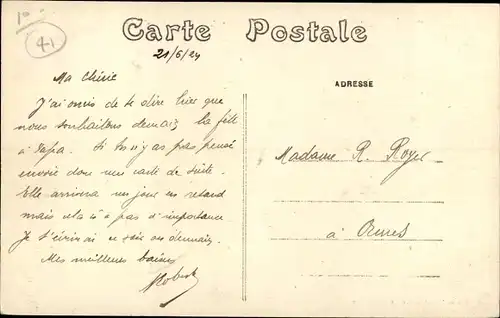 10
41
Carte Postale
21/6/24
ADRESSE
Ma Chérie
J'ai omis de te dire hier que
nous souhaitons demain la fête
à Papa. Si tu n'y as pas pensé
envoie donc une carte de suite.
Elle arrivera un jour en retard
mais cela n'a pas d'importance
Je t'écrirai ce soir ou demain.
Mes meilleurs baisers
Robert
Madame R. Royer
à Ormes